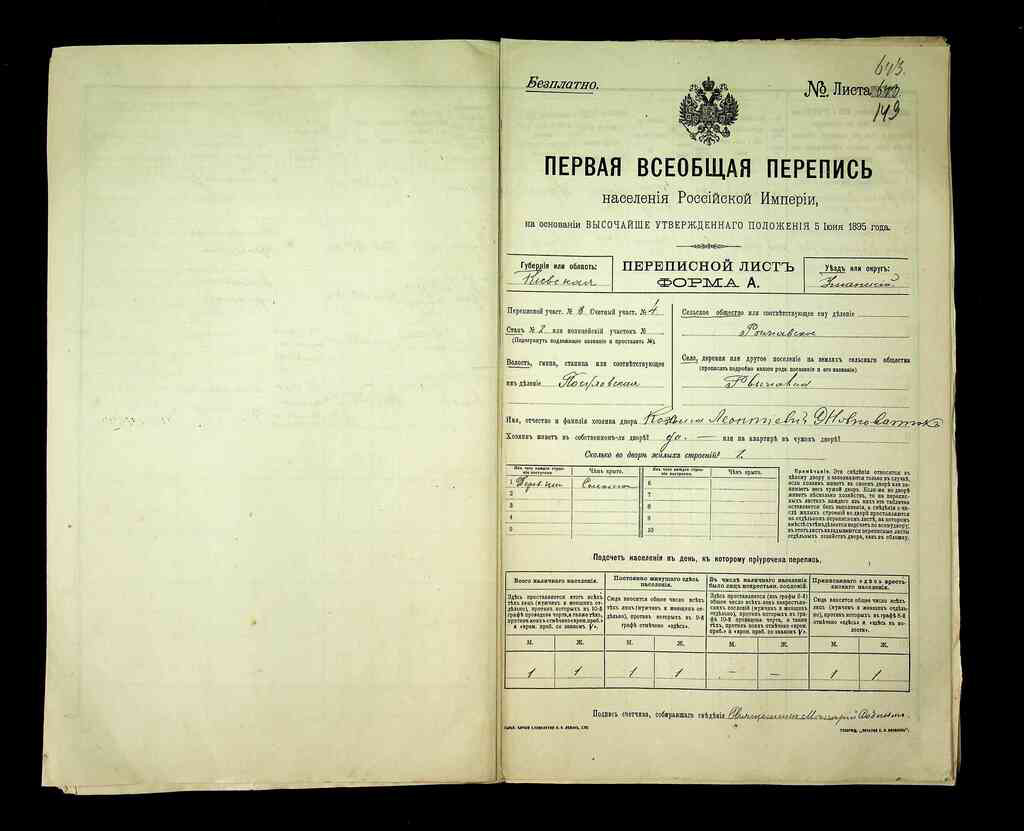 643.
Безплатно.
№ Листа
149
ПЕРВАЯ ВСЕОБЩАЯ ПЕРЕПИСЬ
населенія Россійской Имперіи,
на основаніи ВЫСОЧАЙШЕ УТВЕРЖДЕННАГО ПОЛОЖЕНІЯ 5 Іюня 1895 года.
Губернія или область:
Кіевская
ПЕРЕПИСНОЙ ЛИСТЪ
ФОРМА А.
Уѣздъ или округъ:
Уманскій
Переписной участ. № 8 Счетный участ. № 4
Станъ № 2 или полицейскій участокъ №
(Подчеркнуть подлежащее названіе и проставить №).
Волость, гмина, станица или соотвѣтствующее
имъ дѣленіе
Сельское общество или соотвѣтствующее ему дѣленіе
Село, деревня или другое поселеніе на земляхъ сельскаго общества
(прописать подробно какого рода поселеніе и его названіе)
Имя, отчество и фамилія хозяина двора Леонтіевъ
Хозяинъ живетъ въ собственномъ-ли дворѣ? да. — или на квартирѣ въ чужомъ дворѣ?
Сколько во дворѣ жилыхъ строеній? 1.
Изъ чего каждое строеніе построено.
Чѣмъ крыто.
Изъ чего каждое строеніе построено.
Чѣмъ крыто.
1 Соломою 6
2 7
3 8
4 9
5 10
Примѣчаніе. Эти свѣдѣнія относятся къ
цѣлому двору и заполняются только въ случаѣ,
если хозяинъ живетъ въ своемъ дворѣ или занимаетъ
весь чужой дворъ. Если же во дворѣ
живетъ нѣсколько хозяйствъ, то на переписныхъ
листахъ каждаго изъ нихъ эта табличка
остается безъ заполненія, а свѣдѣнія о числѣ
жилыхъ строеній во дворѣ проставляются
на отдѣльномъ переписномъ листѣ, на которомъ
вмѣстѣ съ тѣмъ дѣлается подсчетъ по всему двору;
въ этотъ листъ вкладываются переписные листы
отдѣльныхъ хозяйствъ двора, какъ въ обложку.
Подсчетъ населенія въ день, къ которому пріурочена перепись.
Всего наличнаго населенія.
Постоянно живущаго здѣсь населенія.
Въ числѣ наличнаго населенія было лицъ некрестьян. сословій.
Приписаннаго здѣсь крестьянскаго населенія.
Здѣсь проставляется итогъ всѣхъ
тѣхъ лицъ (мужчинъ и женщинъ отдѣльно),
противъ которыхъ въ 10-й
графѣ проведена черта, а также тѣхъ,
противъ коихъ отмѣчено «врем. преб.»
и «врем. преб. со знакомъ V».
Сюда вносится общее число всѣхъ
тѣхъ лицъ (мужчинъ и женщинъ отдѣльно),
противъ которыхъ въ 9-й
графѣ отмѣчено «здѣсь».
Здѣсь проставляется (изъ графы 6-й)
общее число всѣхъ лицъ некрестьянскихъ
сословій (мужчинъ и женщинъ
отдѣльно), противъ которыхъ въ графѣ
10-й проведена черта, а также
тѣхъ, противъ коихъ отмѣчено «врем.
преб.» и «врем. преб. со знакомъ V».
Сюда вносится общее число всѣхъ
лицъ (мужчинъ и женщинъ отдѣльно),
противъ которыхъ въ графѣ 8-й
отмѣчено «здѣсь» и «здѣсь въ волости».
М. Ж. М. Ж. М. Ж. М. Ж.
1 1 1 1 — — 1 1
Подпись счетчика, собиравшаго свѣдѣнія Священникъ